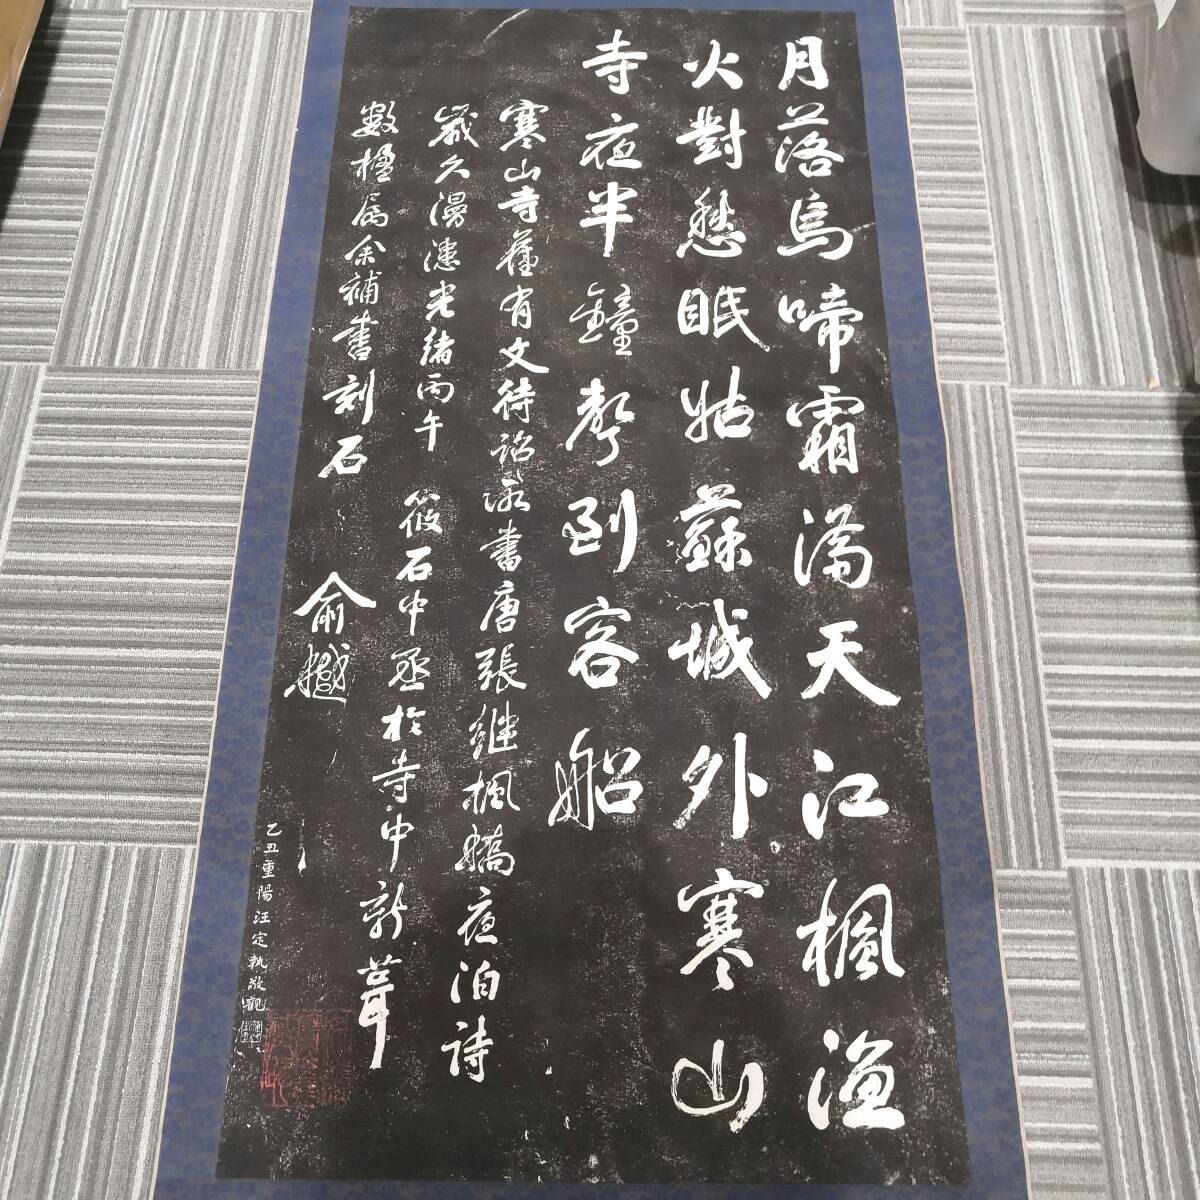 月落烏啼霜滿天江楓漁
火對愁眠姑蘇城外寒山
寺夜半鐘聲到客船
寒山寺舊有文待詔所書唐張繼楓橋夜泊詩
歲久漫漶光緒丙午
筱石中丞於寺中新葺
數楹屬余補書刻石
俞樾
乙丑重陽汪定執敬觀